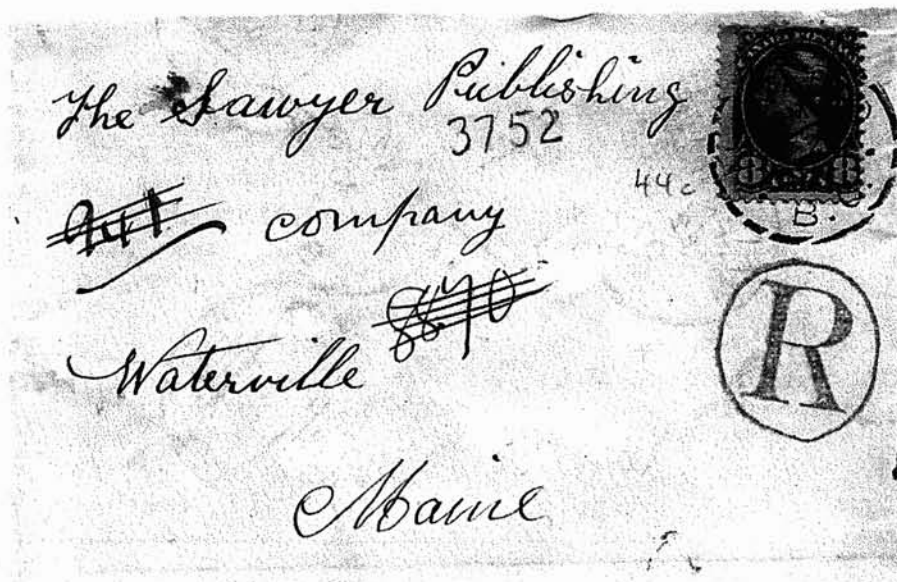 The Sawyer Publishing
3752
44c
company
8870
Waterville
Maine
8 8
B.C.
R